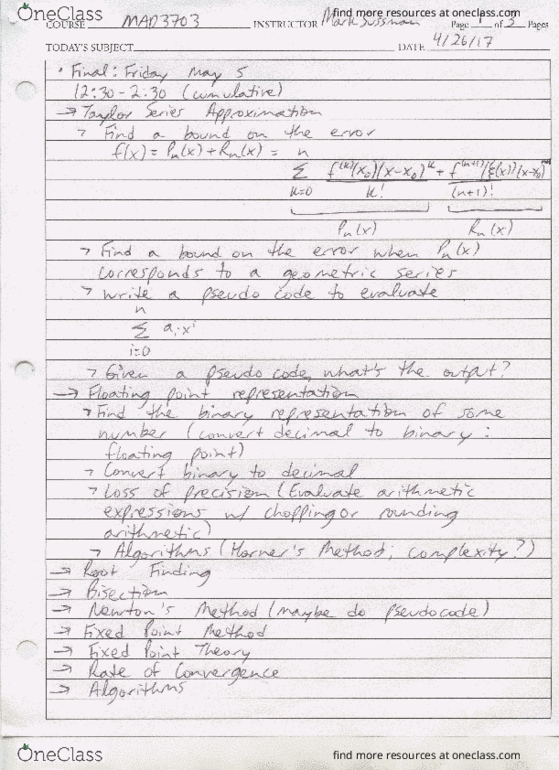 OneClass
find more resources at oneclass.com
COURSE MAD3703 INSTRUCTOR Mark Sussman Page 1 of 3 Pages
TODAY'S SUBJECT DATE 4/26/17
• Final: Friday May 5
12:30-2:30 (cumulative)
→ Taylor Series Approximation
> Find a bound on the error
f(x) = Pn(x) + Rn(x) = n
Σ f^(k)(x₀)(x-x₀)^k + f^(n+1)(ξ(x))(x-x₀)^n+1
k=0 k! (n+1)!
Pn(x) Rn(x)
> Find a bound on the error when Pn(x)
corresponds to a geometric series
> Write a pseudo code to evaluate
n
Σ aᵢxⁱ
i=0
> Given a pseudo code, what's the output?
→ Floating point representation
> Find the binary representation of some
number (convert decimal to binary:
floating point)
> Convert binary to decimal
> Loss of precision (Evaluate arithmetic
expressions w/ chopping or rounding
arithmetic)
> Algorithms (Horner's Method; complexity?)
→ Root Finding
→ Bisection
→ Newton's Method (maybe do pseudocode)
→ Fixed Point Method
→ Fixed Point Theory
→ Rate of Convergence
→ Algorithms
OneClass
find more resources at oneclass.com